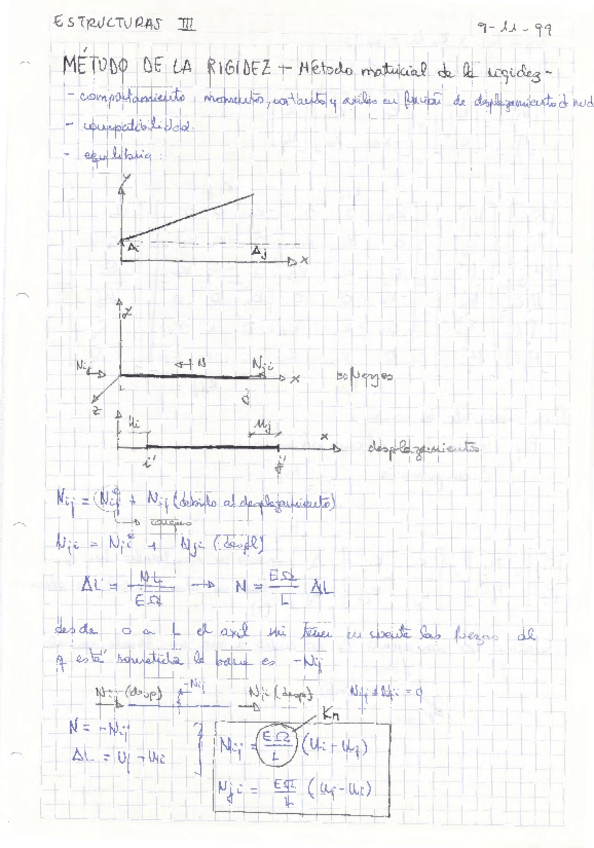 ESTRUCTURAS III
9-11-99
MÉTODO DE LA RIGIDEZ - Método matricial de la rigidez -
- comportamiento: momentos, cortantes y axiles en función de desplazamientos d nud
- compatibilidad
- equilibrio:
y
Δi Δj x
y
Nij N Nji x esfuerzos
z j
ui uj x desplazamientos
i' j'
Nij = Nij^e + Nij (debido al desplazamiento)
→ cargas
Nji = Nji^e + Nji (despl)
ΔL = NL/EΩ → N = EΩ/L ΔL
desde 0 a L el axil sin tener en cuenta las fuerzas al
q está sometida la barra es -Nij
Nij (desp) -Nij Nji (desp) Nij + Nji = 0
Kn
N = -Nij
ΔL = Uj - Ui
Nij = EΩ/L (Ui - Uj)
Nji = EΩ/L (Uj - Ui)